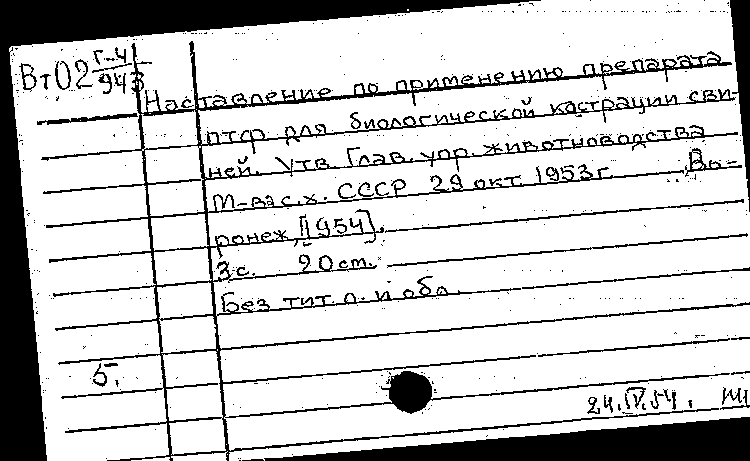 Вт02 Г-41
943
Наставление по применению препарата
птф для биологической кастрации сви-
ней. Утв. Глав. упр. животноводства
М-ва с.х. СССР 29 окт. 1953 г. Во-
ронеж, [1954].
3 с. 20 см.
Без тит. л. и обл.
5.
24.IV.54.